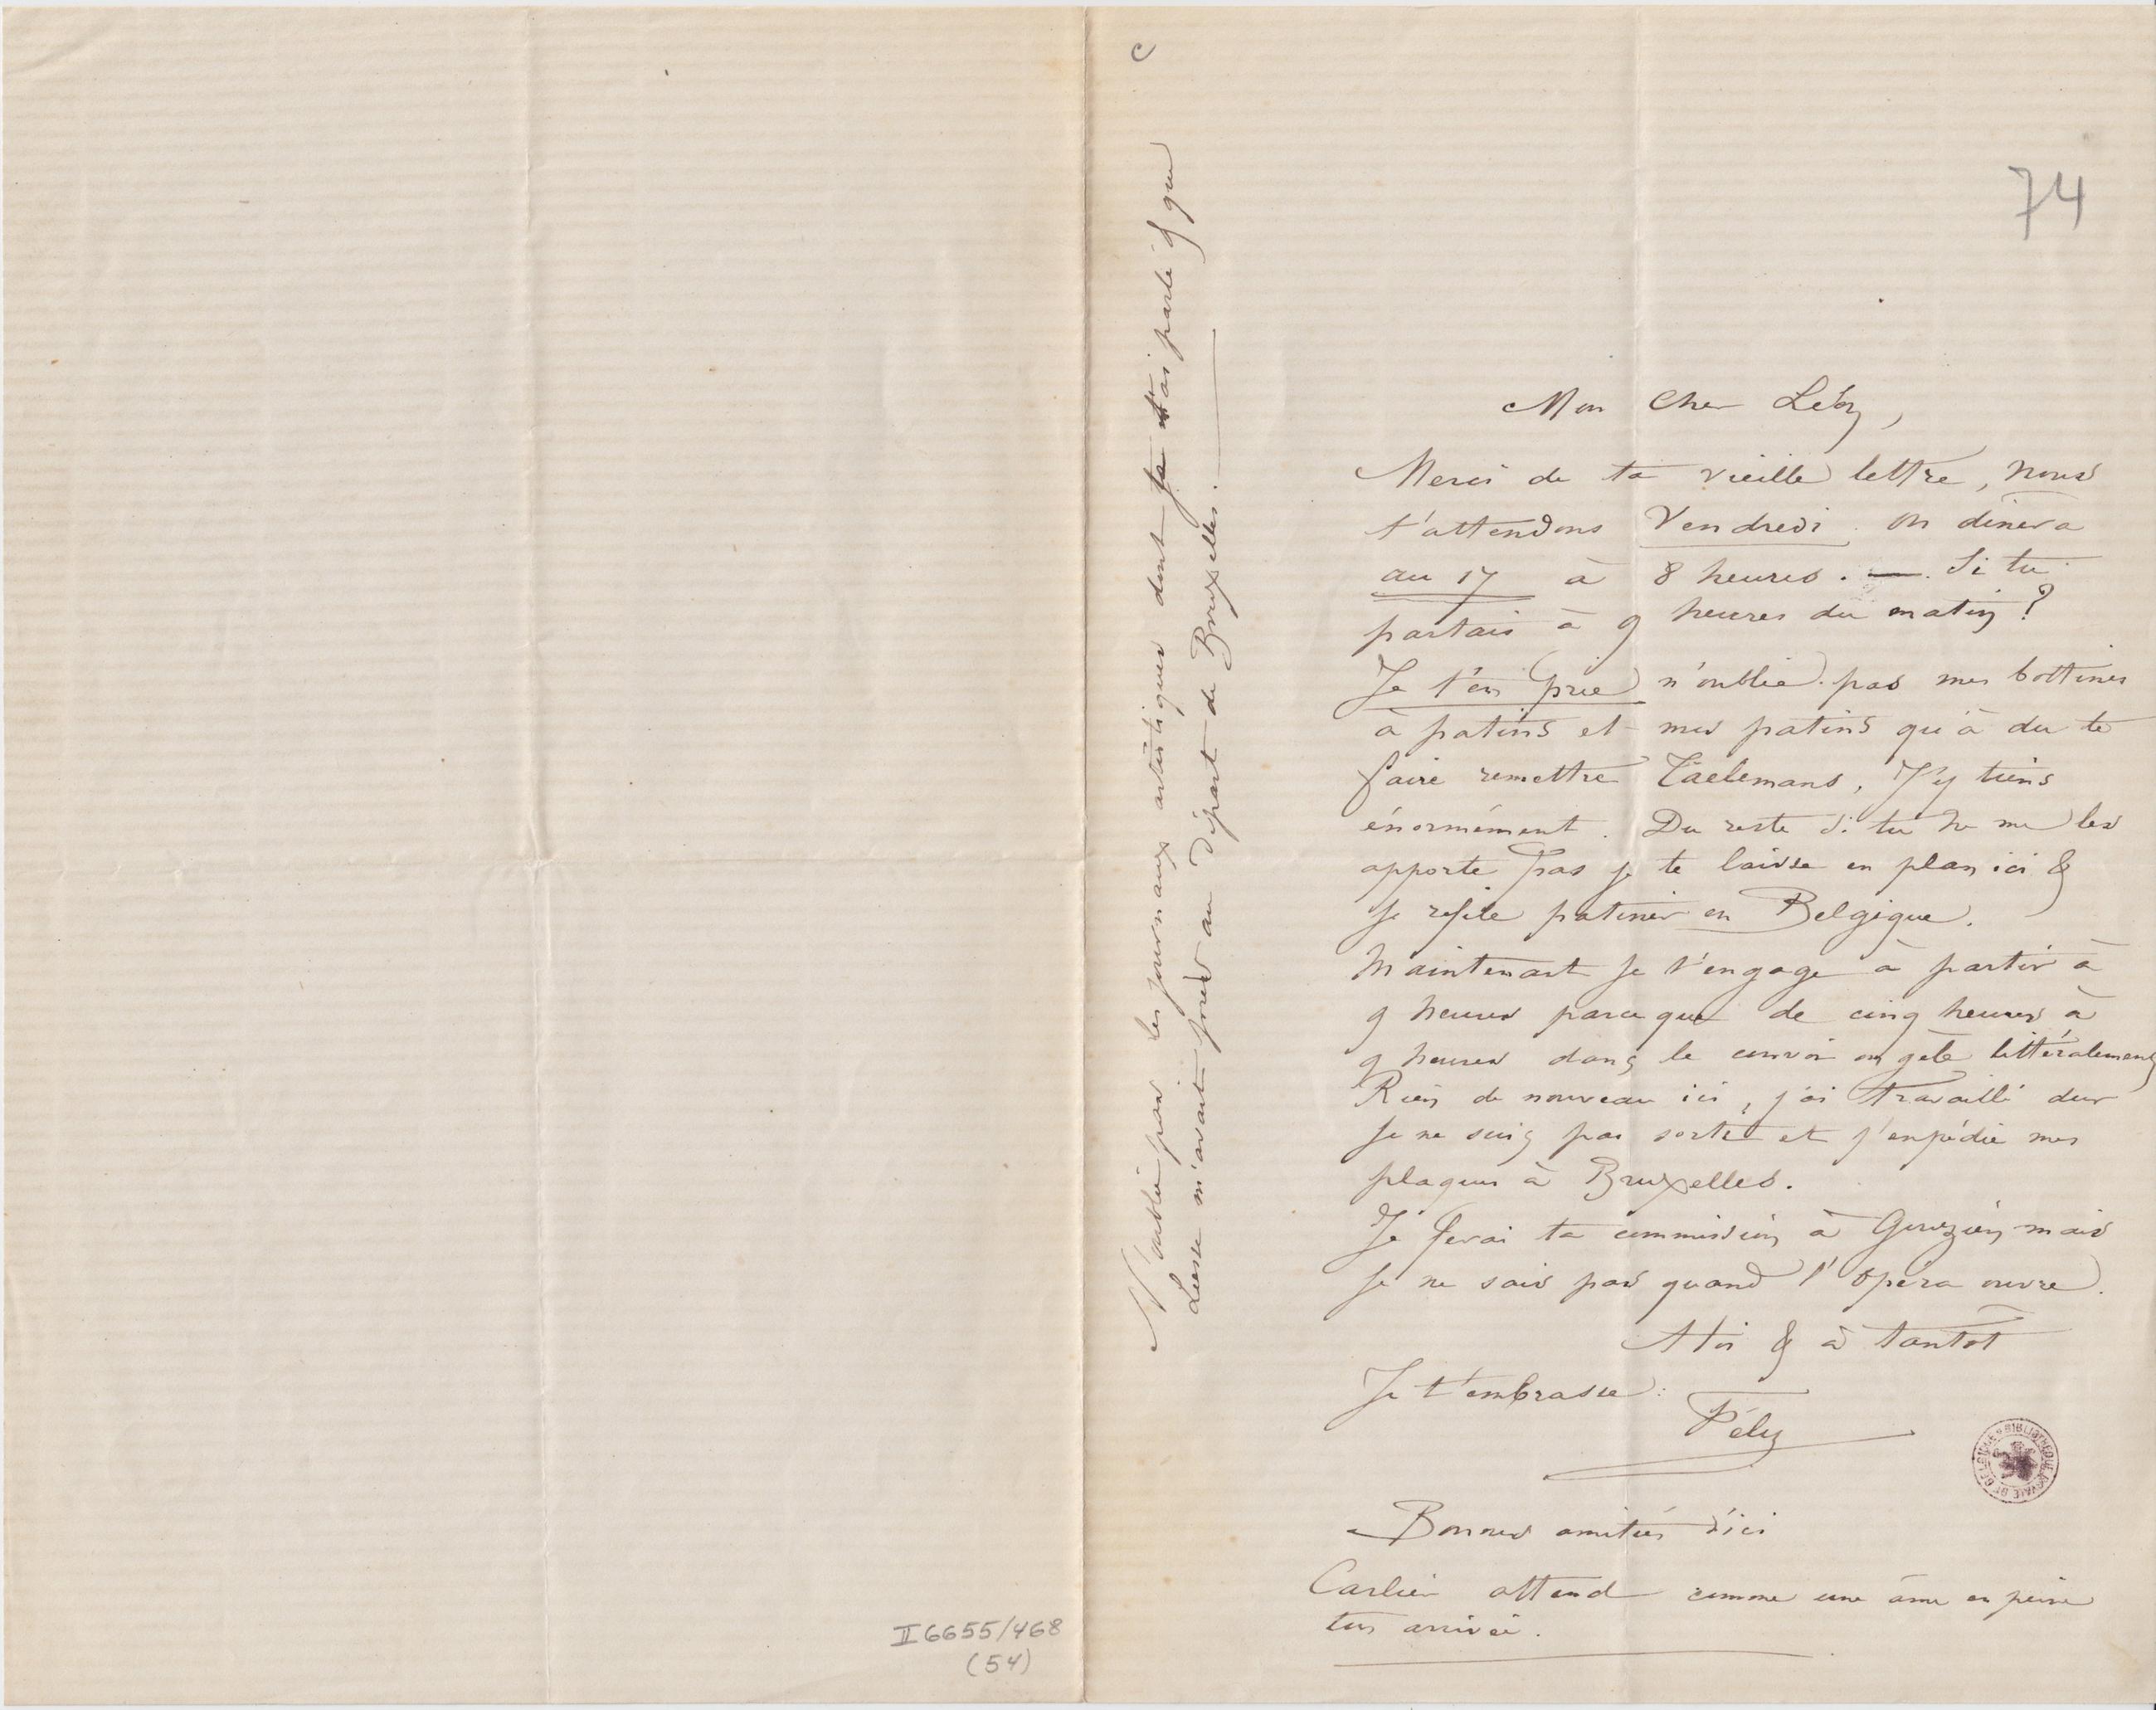 74
Mon Cher Léon,
Merci de ta vieille lettre, nous
t'attendons Vendredi. on dinera
au 17 à 8 heures. — Si tu
partais à 9 heures du matin?
Je t'en prie n'oublie pas mes bottines
à patins et mes patins qu'à du te
faire remettre Taelemans, J'y tiens
énormément. Du reste si tu ne me les
apporte pas je te laisse en plan ici &
je refile patiner en Belgique.
Maintenant je t'engage à partir à
9 heures parceque de cinq heures à
9 heures dans le convoi on gèle littéralement
Rien de nouveau ici, j'ai travaillé dur
je ne suis pas sorti et j'expédie mes
plaques à Bruxelles.
Je ferai ta commission à Gouzien mais
je ne sais pas quand l'opéra ouvre.
A toi & à tantot
Je t'embrasse:
Fély
Bonnes amitiés d'ici
Carlier attend comme une âme en peine
ton arrivée.
N'oublie pas les journaux artistiques dont je t'ai parlé & que
Liesse m'avait au départ de Bruxelles.
BIBLIOTHÈQUE ROYALE DE BELGIQUE
II 6655/468
(54)